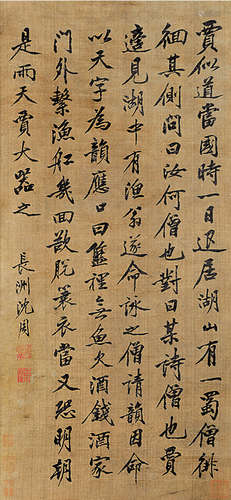 賈似道當國時一日退居湖山有一蜀僧徘
徊其側問曰汝何僧也對曰某詩僧也賈
遙見湖中有漁翁遂命詠之僧請韻因命
以天字為韻應口曰籃裡無魚欠酒錢酒家
門外繫漁船幾回欲脫蓑衣當又恐明朝
是雨天賈大器之
長洲沈周